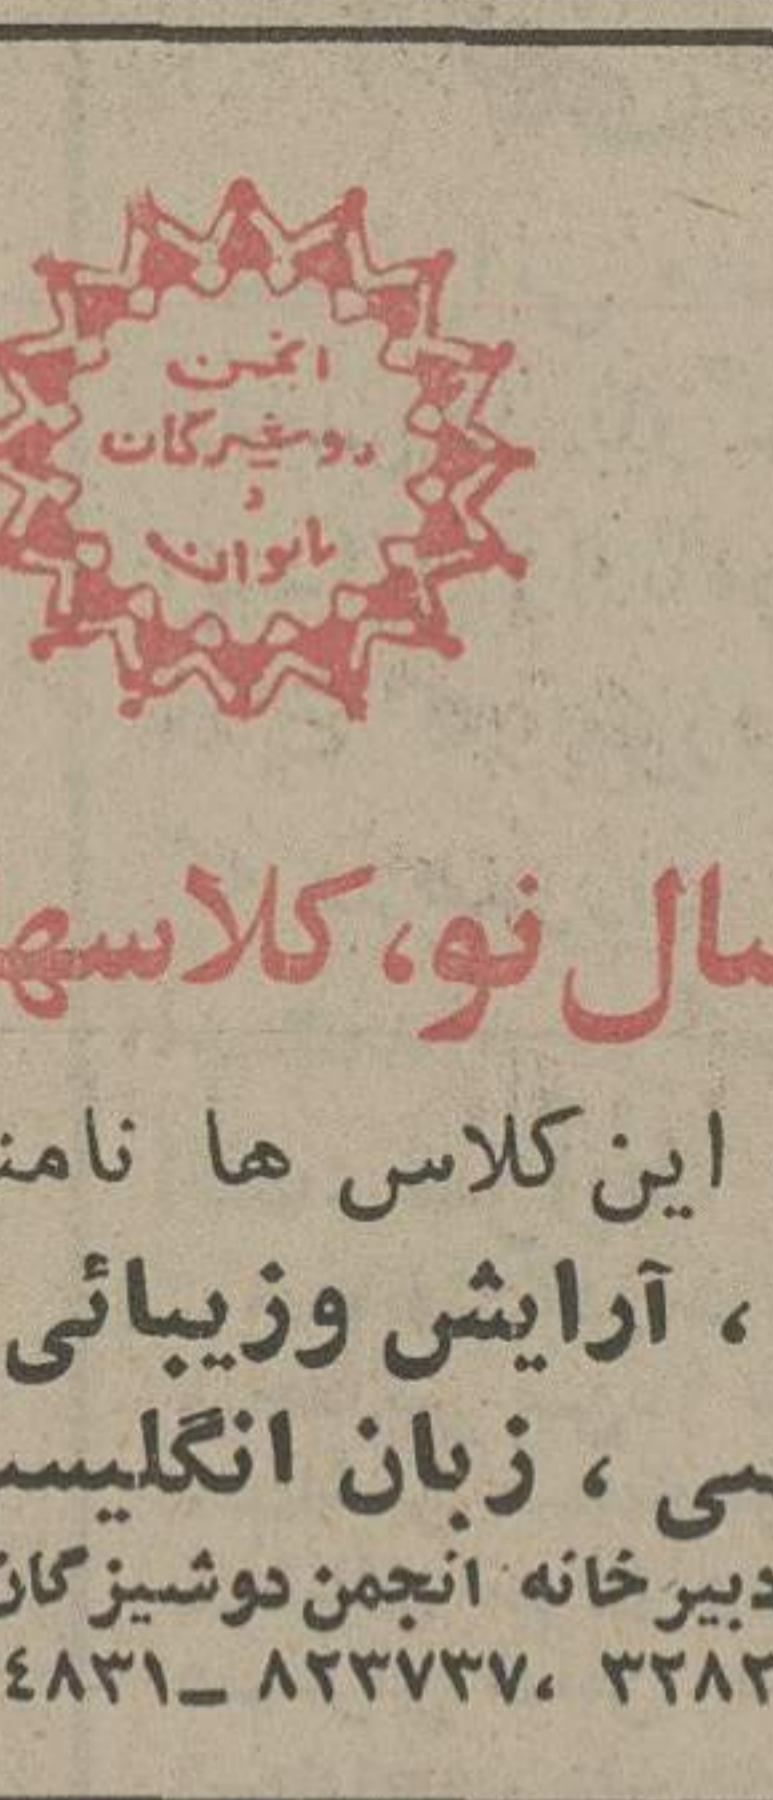 انجمن
دوشیزگان
و
بانوان
سال نو، کلاسها
این کلاس ها نامن
، آرایش وزیبائی
سی ، زبان انگلیس
دبیرخانه انجمن دوشیزگان
۳۲۸۲ ،۸۲۳۷۳۷ _ ٤۸۳۱